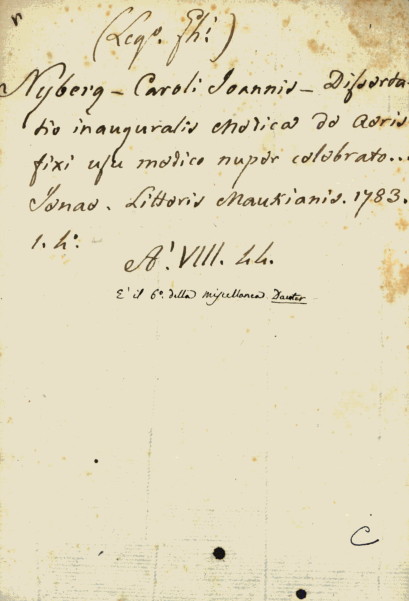 (Legº. Fhi)
Nyberg - Caroli Joannis - Disserta-
tio inauguralis Medica de Aeris
fixi usu medico nuper celebrato...
Jenae. Litteris Maukianis. 1783.
1. 4º.
A'. VIII. 44.
E' il 6º. della Miscellanea Dauter
C